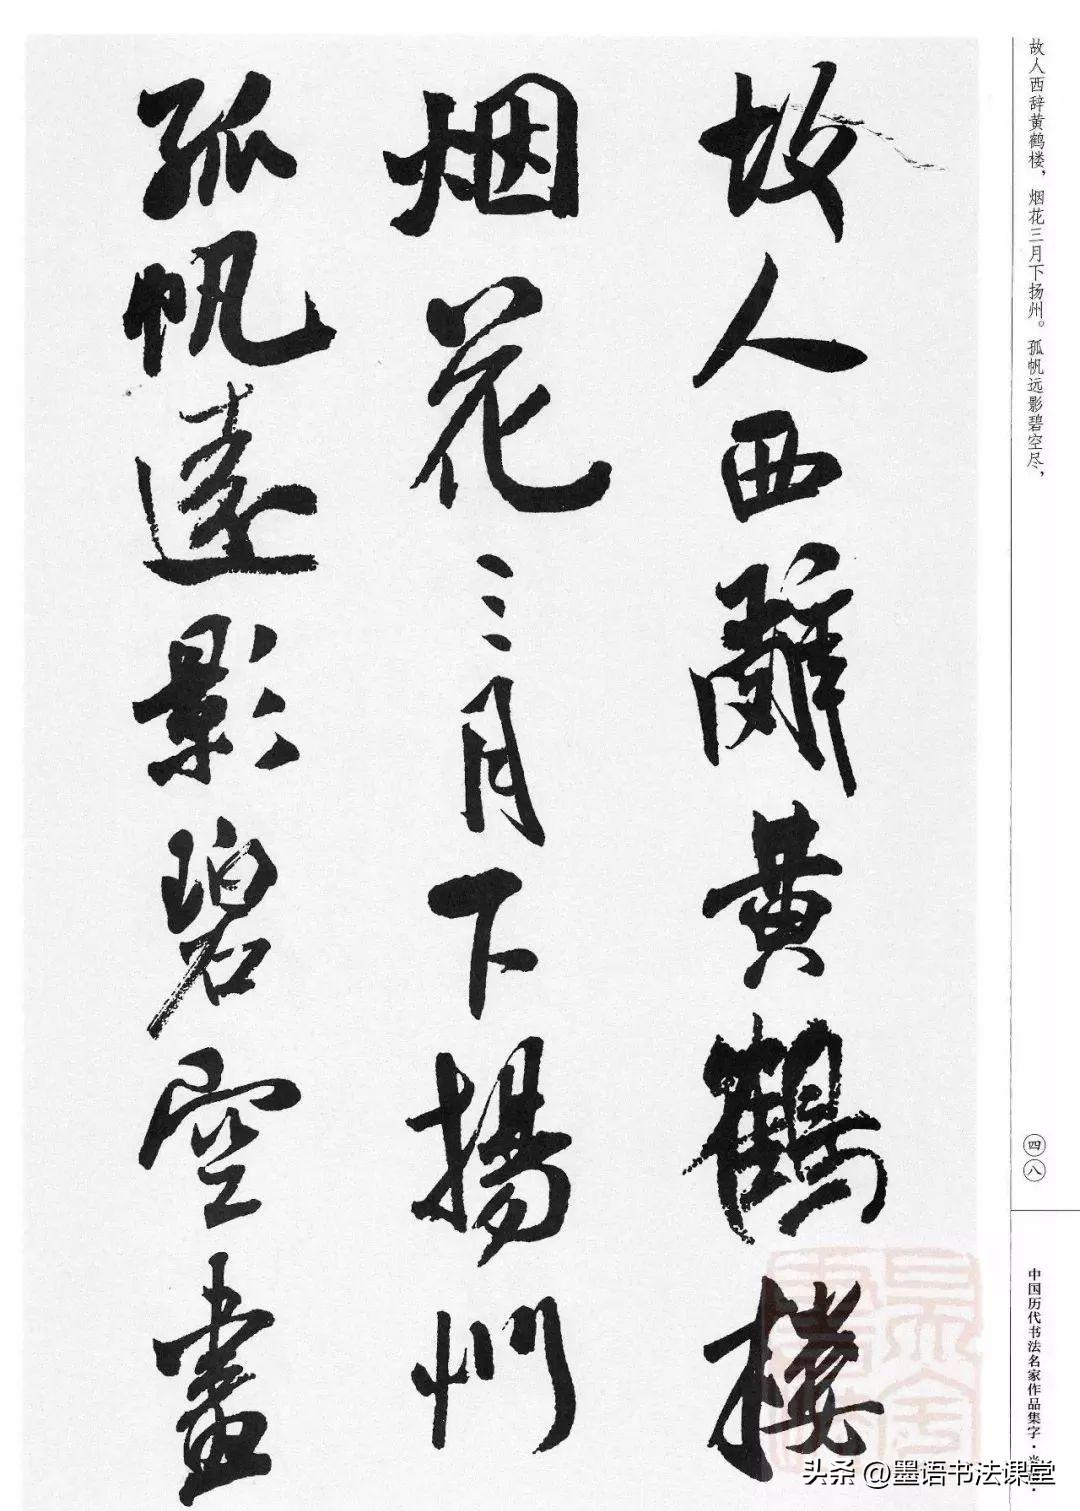 故人西辭黄鶴樓
烟花三月下揚州
孤帆遠影碧空盡
故人西辞黄鹤楼，烟花三月下扬州。孤帆远影碧空尽，
四八
中国历代书法名家作品集字·
头条 @墨语书法课堂